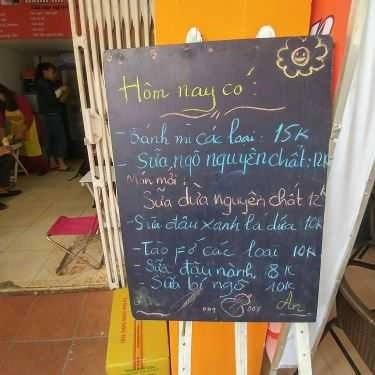 Hôm nay có!
- Bánh mì các loại: 15K
- Sữa ngô nguyên chất: 12K
Món mới:
Sữa dừa nguyên chất 12K
- Sữa đậu xanh lá dứa 10K
- Tào Fớ các loại 10K
- Sữa đậu nành 8K
- Sữa bí ngô 10K
Ăn